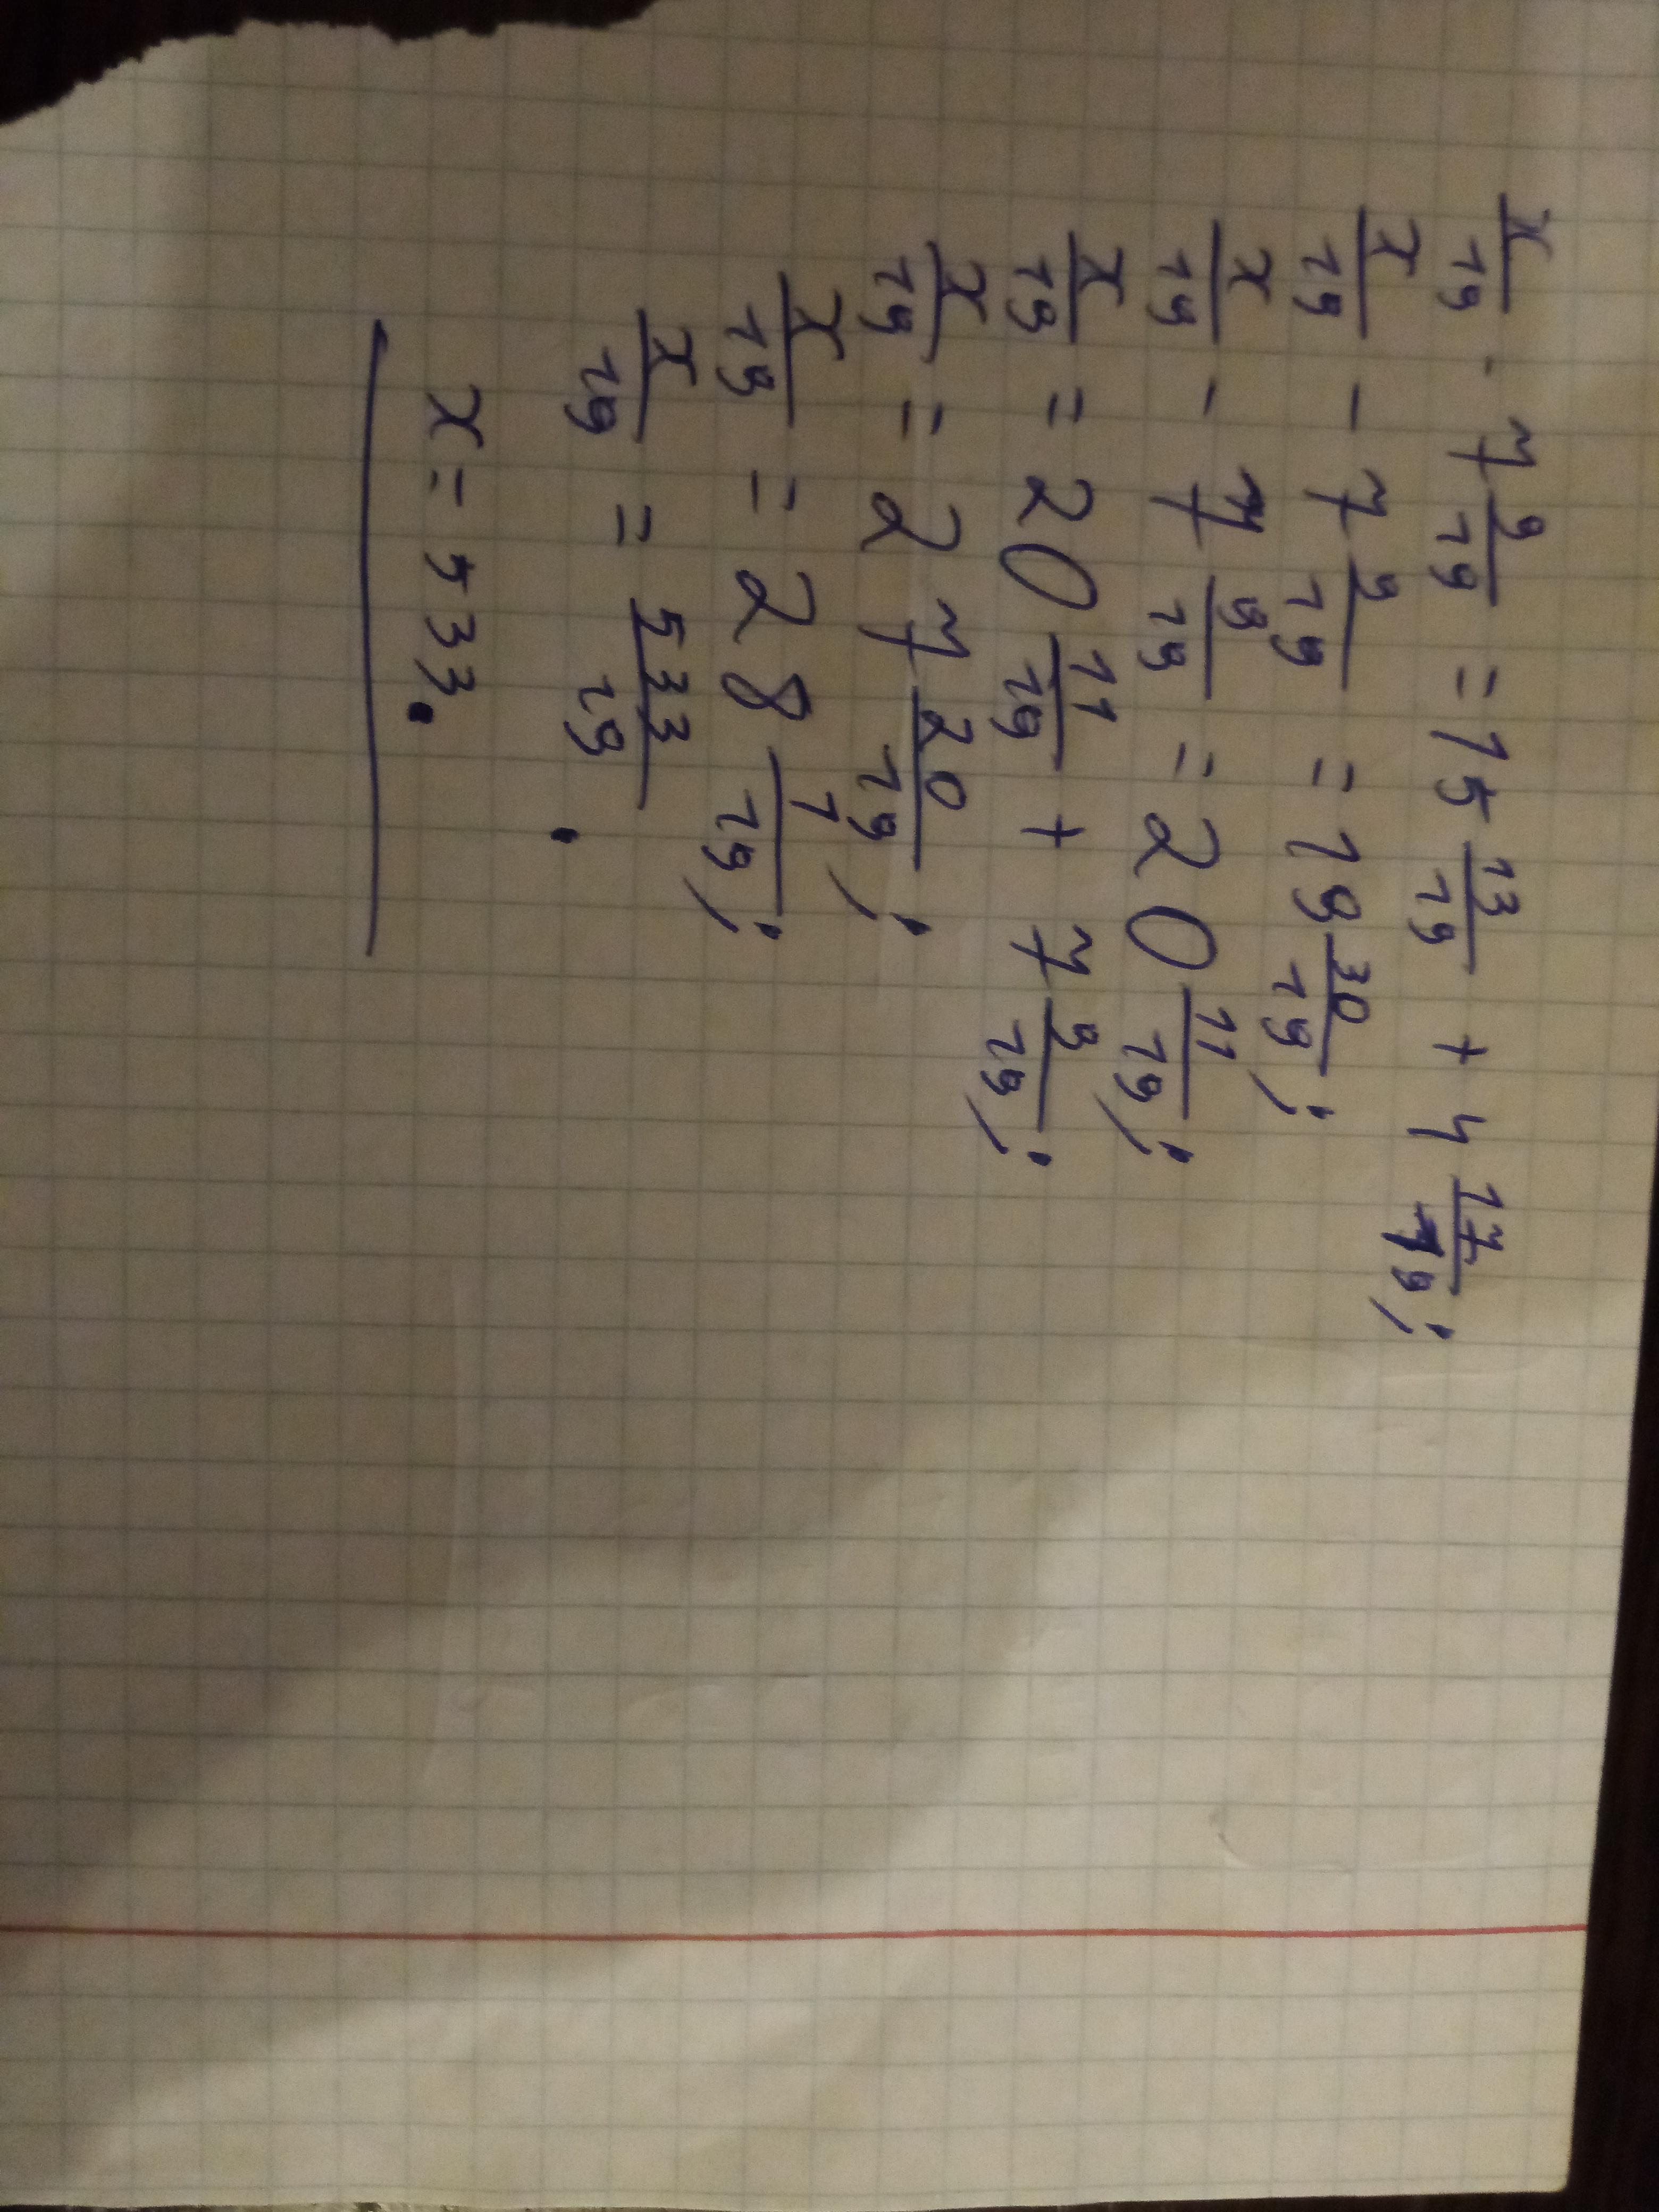 x/19 - 7 9/19 = 15 13/19 + 4 17/19;
x/19 - 7 9/19 = 19 30/19;
x/19 - 7 9/19 = 20 11/19;
x/19 = 20 11/19 + 7 9/19;
x/19 = 27 20/19;
x/19 = 28 1/19;
x/19 = 533/19.
x = 533.